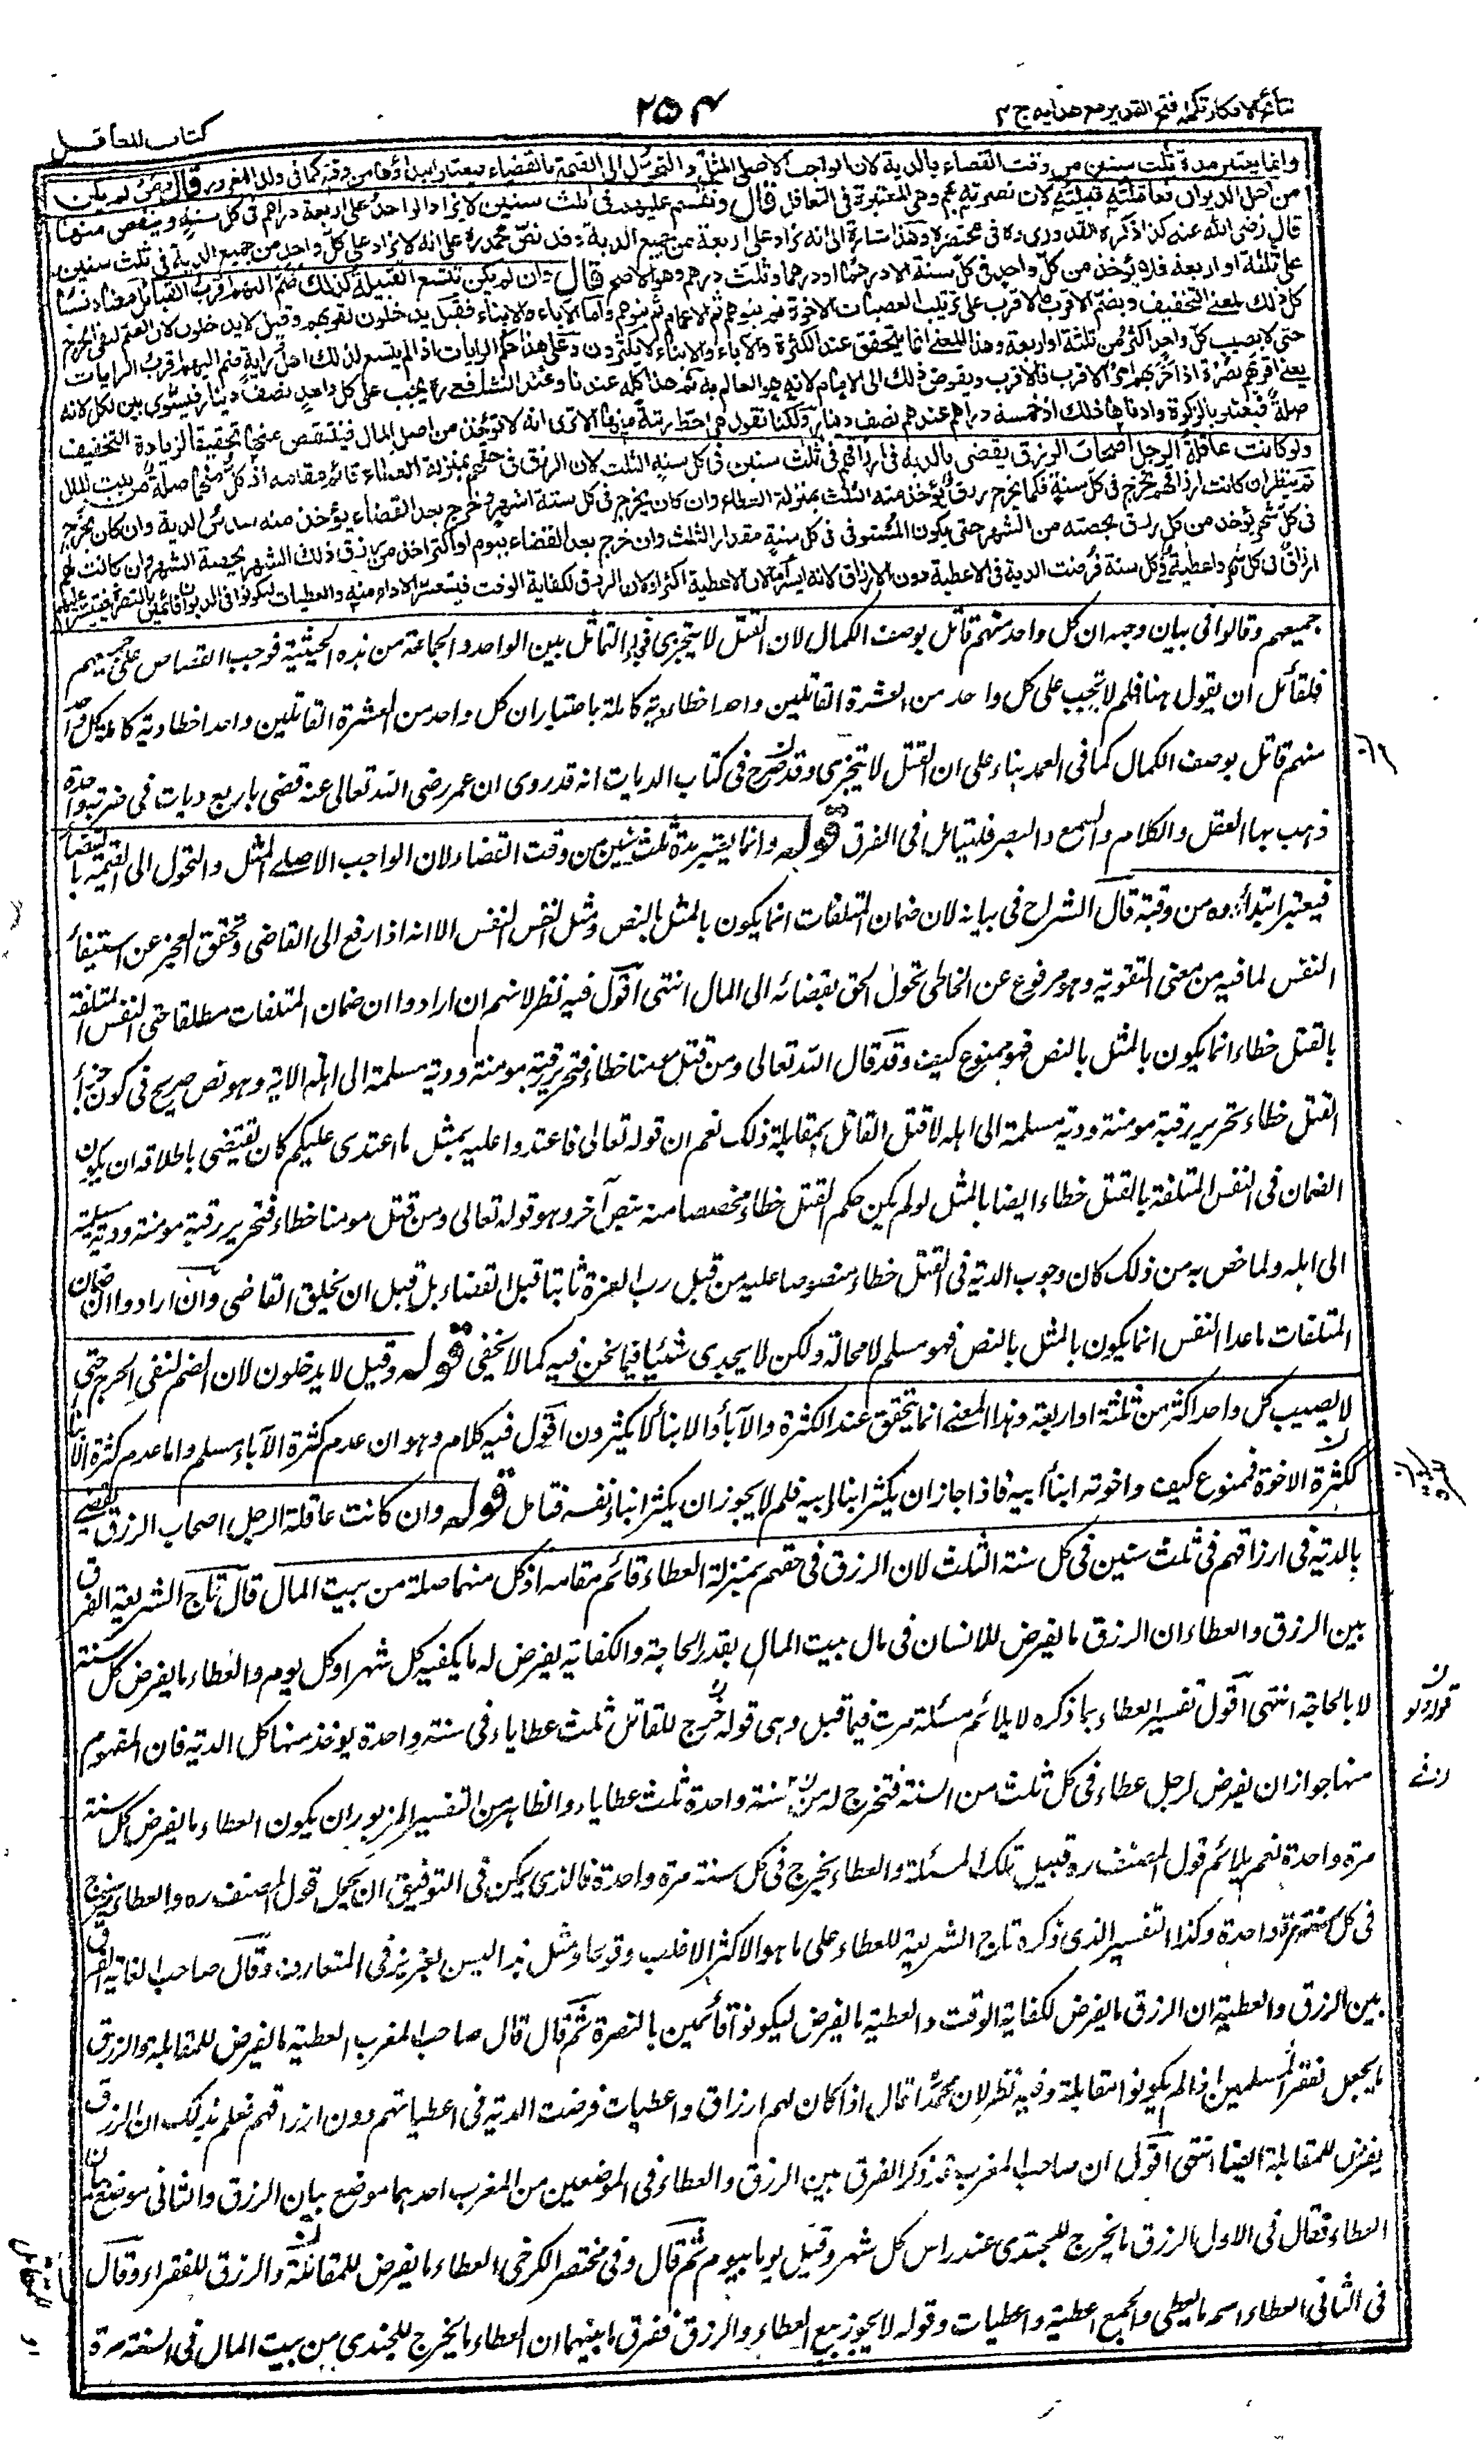 نتائج الافكار تكملة فتح القدير مع هدايه ج ۴
۲۵۴
كتاب المعاقل
وانما يعتبر مدة ثلث سنين من وقت القضاء بالدية لان الواجب الاصلى المثل والتحول الى القيمة بالقضاء فيعتبر ابتداؤها من وقته كما فى ولد المغرور قال ومن لم يكن
من اهل الديوان فعاقلته قبيلته لان نصرته بهم وهى المعتبرة فى التعاقل قال وتقسم عليهم فى ثلث سنين لا يزاد الواحد على اربعة دراهم فى كل سنة وينقص منها
قال رضى الله عنه كذا ذكره القدورى ره فى مختصره وهذا اشارة الى انه يزاد على اربعة من جميع الدية وقد نص محمد ره على انه لا يزاد على كل واحد من جميع الدية فى ثلث سنين
على ثلثة او اربعة فلا يؤخذ من كل واحد فى كل سنة الا درهما او درهما وثلث درهم وهو الاصح قال وان لم يكن تتسع القبيلة لذلك ضم اليهم اقرب القبائل معناه نسبا
كل ذلك لمعنى التخفيف ويضم الاقرب فالاقرب على ترتيب العصبات الاخوة ثم بنوهم ثم الاعمام ثم بنوهم واما الآباء والابناء فقيل يدخلون لقربهم وقيل لا يدخلون لان الضم لنفى الحرج
حتى لا يصيب كل واحد اكثر من ثلثة او اربعة وهذا المعنى انما يتحقق عند الكثرة والآباء والابناء لا يكثرون وعلى هذا حكم الرايات اذا لم يتسع لذلك اهل راية ضم اليهم اقرب الرايات
يعنى اقربهم نصرة اذا حزبهم امر الاقرب فالاقرب ويفوض ذلك الى الامام لانه هو العالم به ثم هذا كله عندنا وعند الشافعى ره يجب على كل واحد نصف دينار فيسوى بين الكل لانه
صلة فيعتبر بالزكوة وادناها ذلك اذ خمسة دراهم عندهم نصف دينار ولكنا نقول هى احط رتبة منها الا ترى انه لا تؤخذ من اصل المال فينتقص عنها تحقيقا لزيادة التخفيف
ولو كانت عاقلة الرجل اصحاب الرزق يقضى بالدية فى ارزاقهم فى ثلث سنين فى كل سنة الثلث لان الرزق فى حقهم بمنزلة العطاء قائم مقامه اذ كل منهما صلة من بيت المال
ثم ينظر ان كانت ارزاقهم تخرج فى كل سنة فكلما يخرج رزق يؤخذ منه الثلث بمنزلة العطاء وان كان يخرج فى كل ستة اشهر وخرج بعد القضاء يؤخذ منه سدس الدية وان كان يخرج
فى كل شهر يؤخذ من كل رزق بحصته من الشهر حتى يكون المستوفى فى كل سنة مقدار الثلث وان خرج بعد القضاء بيوم او اكثر اخذ من رزق ذلك الشهر بحصة الشهر وان كانت لهم
ارزاق فى كل شهر واعطية فى كل سنة فرضت الدية فى الاعطية دون الارزاق لانه ايسر اما لان الاعطية اكثر او لان الرزق لكفاية الوقت فيتعسر الاداء منه والعطيات ليكونوا فى الديوان قائمين بالنصرة فيتيسر عليهم
جميعهم وقالوا فى بيان وجهه ان كل واحد منهم قاتل بوصف الكمال لان القتل لا يتجزى فجاء التماثل بين الواحد والجماعة من هذه الحيثية فوجب القصاص على جميعهم
فلقائل ان يقول ههنا فلم لا تجب على كل واحد من العشرة القاتلين واحدا خطاء دية كاملة باعتبار ان كل واحد من العشرة القاتلين واحدا خطا دية كاملة لكل واحد
منهم قاتل بوصف الكمال كما فى العمد بناء على ان القتل لا يتجزى وقد صرح فى كتاب الديات انه قد روى ان عمر رضى الله تعالى عنه قضى باربع ديات فى ضربة واحدة
ذهب بها العقل والكلام والسمع والبصر فليتامل فى الفرق قوله وانما يعتبر مدة ثلث سنين من وقت القضاء لان الواجب الاصلى المثل والتحول الى القيمة بالقضاء
فيعتبر ابتداؤه من وقته قال الشراح فى بيانه لان ضمان المتلفات انما يكون بالمثل بالنص ومثل النفس النفس الا انه اذا رفع الى القاضى وتحقق العجز عن استيفاء
النفس لما فيه من معنى العقوبة وهو مرفوع عن الخاطى تحول الحق بقضائه الى المال انتهى اقول فيه نظر لانهم ان ارادوا ان ضمان المتلفات مطلقا حتى النفس المتلفة
بالقتل خطاء انما يكون بالمثل بالنص فهو ممنوع كيف وقد قال الله تعالى ومن قتل مؤمنا خطاء فتحرير رقبة مومنة ودية مسلمة الى اهله الاية وهو نص صريح فى كون جزاء
القتل خطاء تحرير رقبة مومنة ودية مسلمة الى اهله لا قتل القاتل بمقابلة ذلك نعم ان قوله تعالى فاعتدوا عليه بمثل ما اعتدى عليكم كان يقتضى باطلاقه ان يكون
الضمان فى النفس المتلفة بالقتل خطاء ايضا بالمثل لو لم يكن حكم القتل خطاء مخصصا منه بنص آخر وهو قوله تعالى ومن قتل مومنا خطاء فتحرير رقبة مومنة ودية مسلمة
الى اهله ولما خص به من ذلك كان وجوب الدية فى القتل خطاء منصوصا عليه من قبل رب العزة ثابتا قبل القضاء بل قبل ان يخلق القاضى وان ارادوا ان ضمان
المتلفات ما عدا النفس انما يكون بالمثل بالنص فهو مسلم لا محالة ولكن لا يجدى شيئا فيما نحن فيه كما لا يخفى قوله وقيل لا يدخلون لان الضم لنفى الحرج حتى
لا يصيب كل واحد اكثر من ثلثة او اربعة وهذا المعنى انما يتحقق عند الكثرة والآباء والابناء لا يكثرون اقول فيه كلام وهو ان عدم كثرة الآباء مسلم واما عدم كثرة الابناء
ككثرة الاخوة فممنوع كيف واخوته ابناء ابيه فاذا جاز ان يكثر ابناء ابيه فلم لا يجوز ان يكثر ابناء نفسه فتامل قوله وان كانت عاقلة الرجل اصحاب الرزق يقضى
بالدية فى ارزاقهم فى ثلث سنين فى كل سنة الثلث لان الرزق فى حقهم بمنزلة العطاء قائم مقامه اذ كل منهما صلة من بيت المال قال تاج الشريعة الفرق
بين الرزق والعطاء ان الرزق ما يفرض للانسان فى مال بيت المال بقدر الحاجة والكفاية يفرض له ما يكفيه كل شهر او كل يوم والعطاء ما يفرض كل سنة
لا بالحاجة انتهى اقول تفسير العطاء بما ذكره لا يلائم مسئلة مرت فيما قبل وهى قوله خرج للقاتل ثلث عطاياء فى سنة واحدة يوخذ منها كل الدية فان المفهوم
منها جواز ان يفرض لرجل عطاء فى كل ثلث من السنة فتخرج له من سنة واحدة ثلث عطاياء والظاهر من التفسير المزبور ان يكون العطاء ما يفرض كل سنة
مرة واحدة نعم يلائم قول المصنف ره قبيل تلك المسئلة والعطاء يخرج فى كل سنة مرة واحدة فالذى يمكن فى التوفيق ان يحمل قول المصنف ره والعطاء يخرج
فى كل سنة مرة واحدة وكذا التفسير الذى ذكره تاج الشريعة للعطاء على ما هو الاكثر الاغلب وقوعا ومثل هذا ليس بعزيز فى المتعارف وقال صاحب الغاية الفرق
بين الرزق والعطية ان الرزق ما يفرض لكفاية الوقت والعطية ما يفرض ليكونوا قائمين بالنصرة ثم قال قال صاحب المغرب العطية ما يفرض للمقاتلة والرزق
ما يجعل لفقراء المسلمين اذا لم يكونوا مقاتلة وفيه نظر لان محمدا قال اذا كان لهم ارزاق واعطيات فرضت الدية فى اعطياتهم دون ارزاقهم فعلم بذلك ان الرزق
يفرض للمقاتلة ايضا انتهى اقول ان صاحب المغرب قد ذكر الفرق بين الرزق والعطاء فى الموضعين من المغرب احدهما موضع بيان الرزق والثانى موضع بيان
العطاء فقال فى الاول الرزق ما يخرج للجندى عند راس كل شهر وقيل يوما بيوم ثم قال وفى مختصر الكرخى العطاء ما يفرض للمقاتلة والرزق للفقراء وقال
فى الثانى العطاء اسم ما يعطى والجمع اعطية واعطيات وقوله لا يجوز بيع العطاء والرزق ففرق ما بينهما ان العطاء ما يخرج للجندى من بيت المال فى السنة مرة